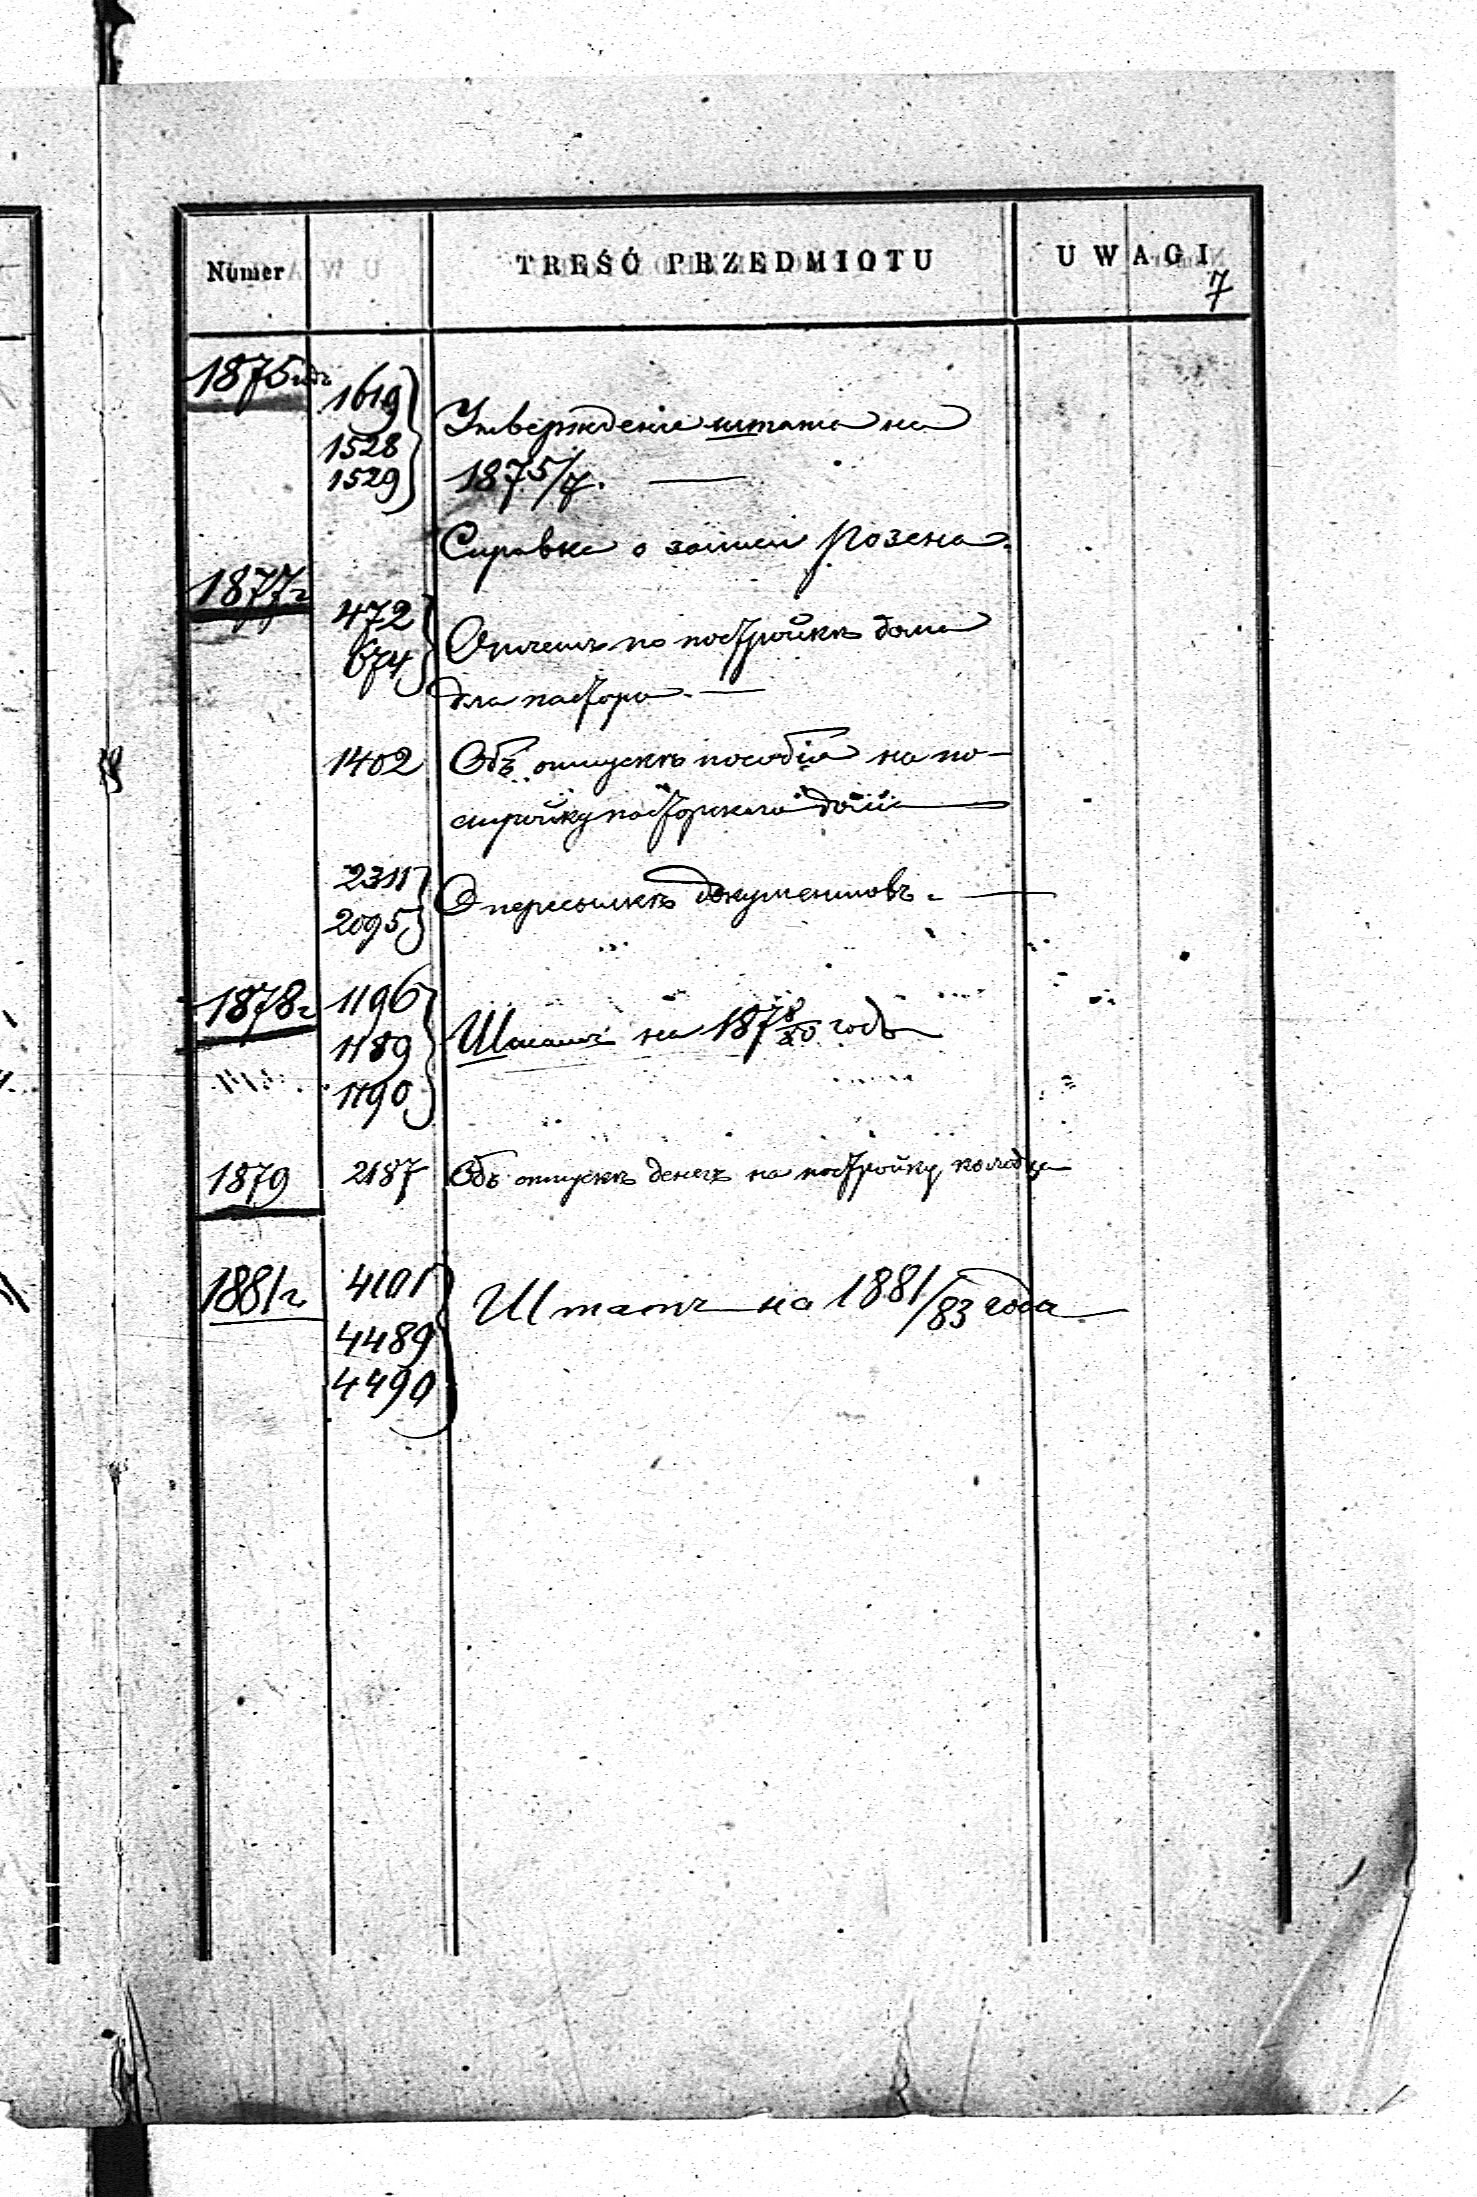 Numer TREŚĆ PRZEDMIOTU UWAGI
7
1875 годъ 1619
Утвержденіе штата на
1528
1529 1875/7.
Справка о записи Розена.
1877 г
472
674 Отчетъ по постройкѣ дома
для пастора.
1402 Объ отпускѣ пособія на по-
стройку пасторскаго дома
2311
2095 О пересылкѣ документовъ.
1878 г 1196
1189 Штатъ на 1878/80 годъ
1190
1879 2187 Объ отпускѣ денегъ на постройку колодца
1881 г. 4101
Штатъ на 1881/83 года
4489
4490